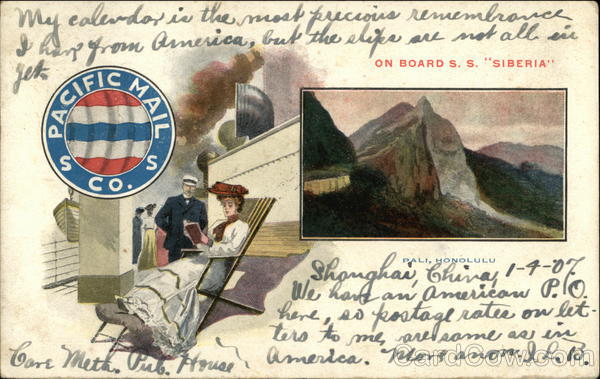 My calendar is the most precious remembrance
I have from America, but the slips are not all in
yet.
ON BOARD S. S. "SIBERIA"
PACIFIC MAIL
S S
CO.
PALI, HONOLULU
Shanghai, China, 1-4-07.
We have an American P. O.
here, so postage rates on let-
ters to me, are same as in
America. More anon.
Care Meth. Pub. House
CardCow.com